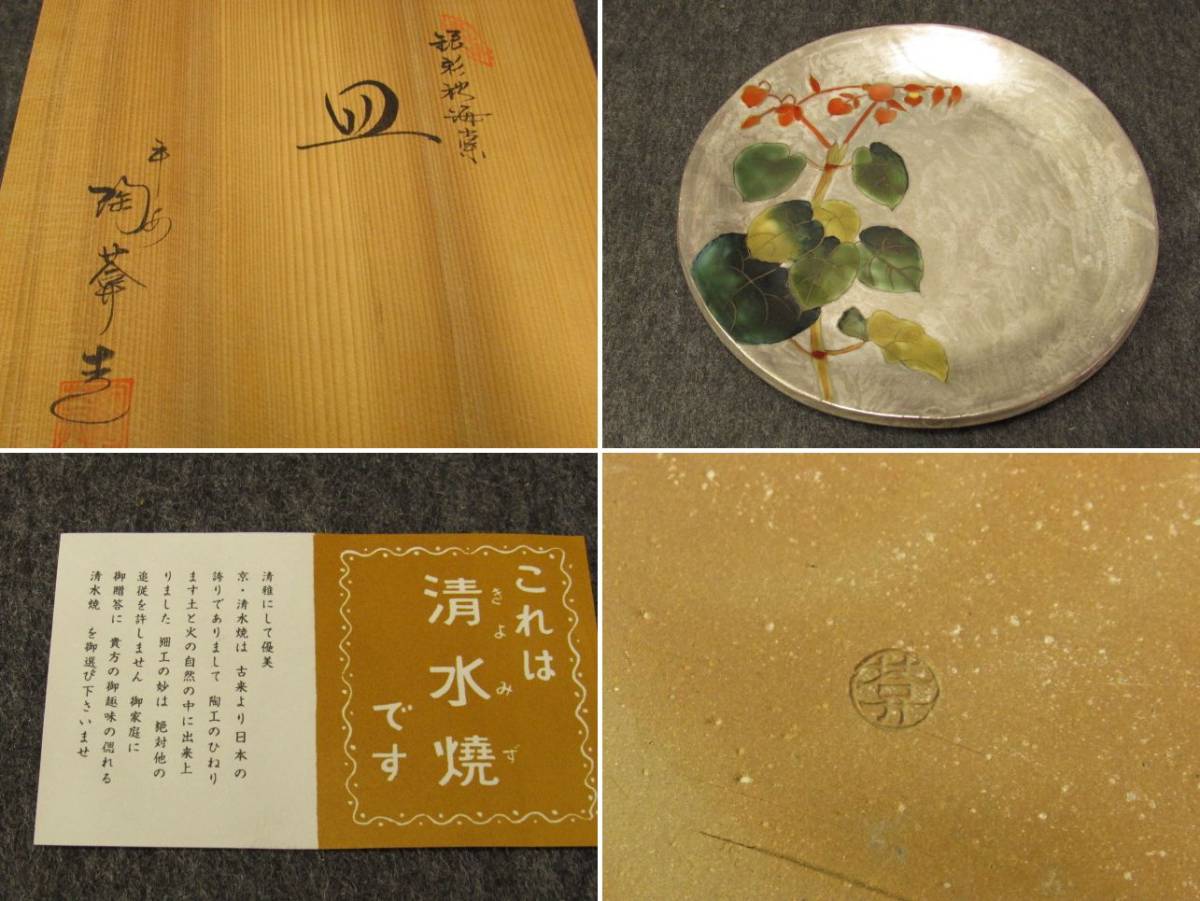 銀彩秋海棠
皿
平安
陶葊造
これは
清水燒
きよみず
です
清雅にして優美
京・清水焼は 古来より日本の
誇りでありまして 陶工のひねり
ます土と火の自然の中に出来上
りました 細工の妙は 絶対他の
追従を許しません 御家庭に
御贈答に 貴方の御趣味の偲れる
清水焼 を御選び下さいませ
葊